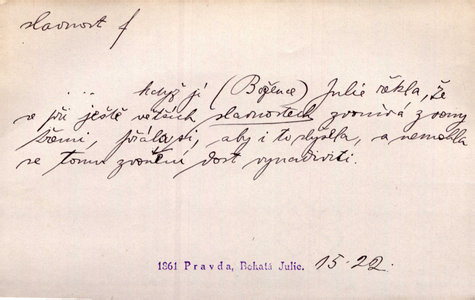 slavnost f
... když jí (Boženě) Julie řekla, že
se při ještě větších slavnostech zvonívá zvony
všemi, přála si, aby i to slyšela, a nemohla
se tomu zvonění dost vynadiviti.
1861 Pravda, Bohatá Julie. 15.22.